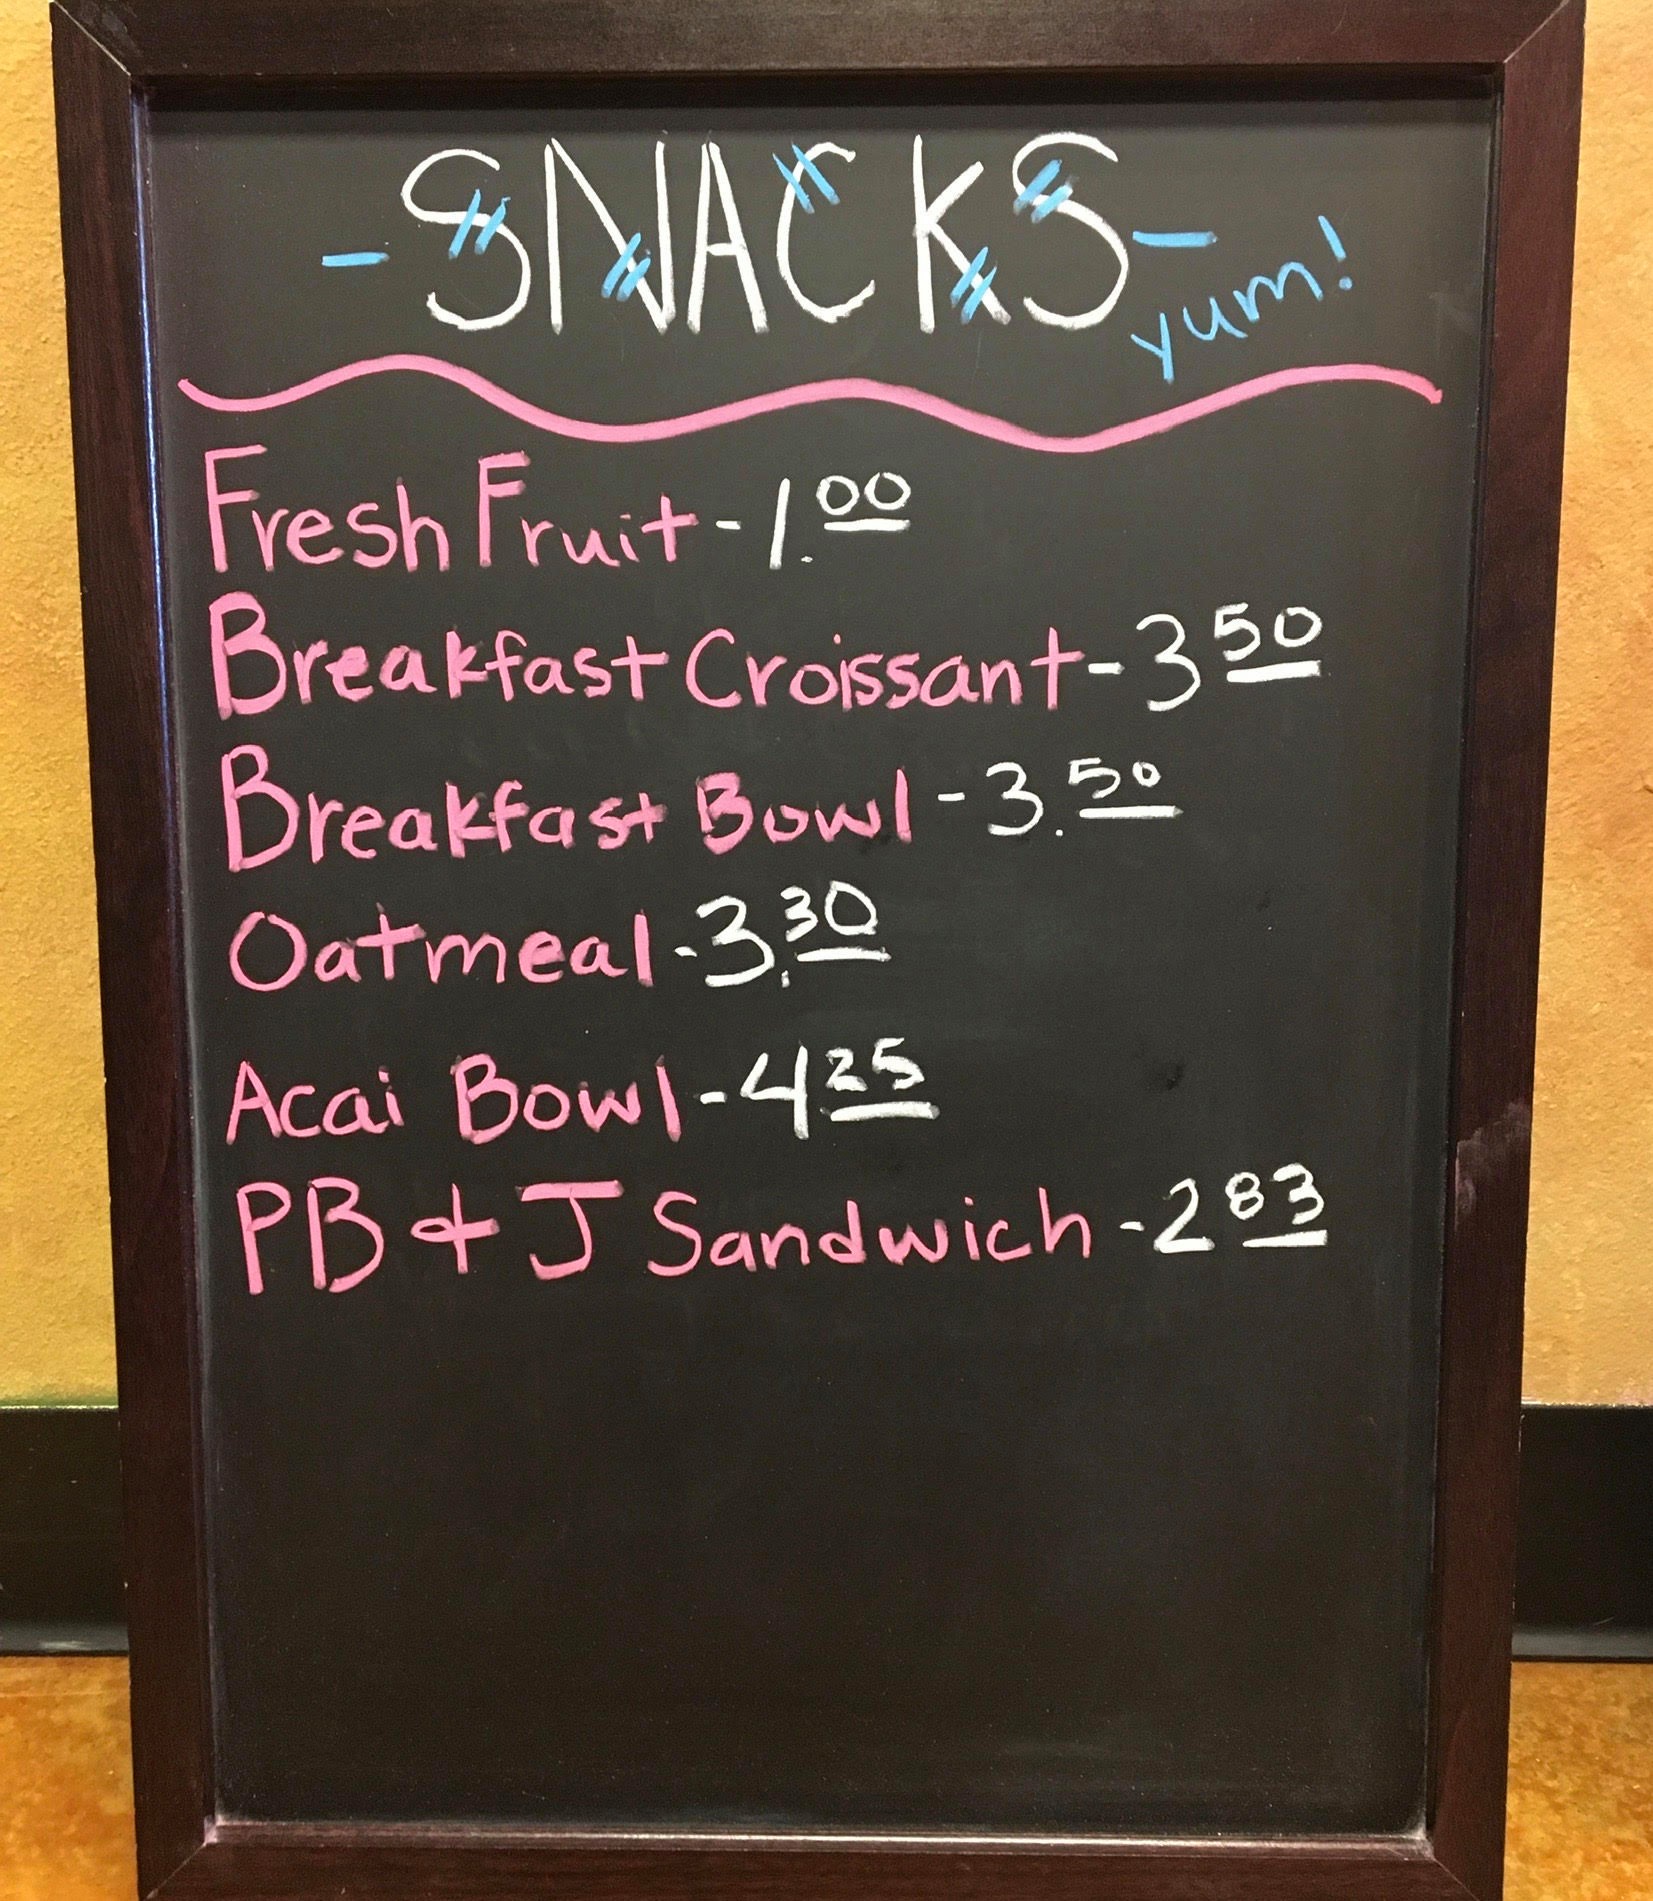 - SNACKS -
yum!
Fresh Fruit - 1.00
Breakfast Croissant - 3 50
Breakfast Bowl - 3.50
Oatmeal - 3.30
Acai Bowl - 4 25
PB & J Sandwich - 2 83